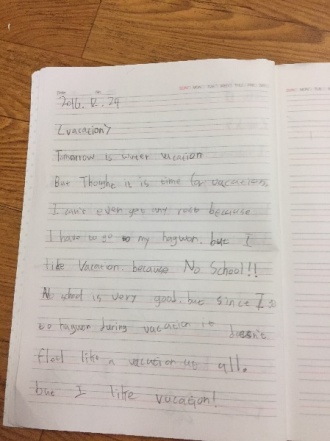 2016. 12. 29
<vacation>
Tomorrow is winter vacation
But Thought it is time for vacation
I can't even get any rest because
I have to go to my hagwon. but I
like Vacation. because No School!!
No school is very good. but since I go
to hagwon during vacation it doesn't
feel like a vacation at all.
but I like vacation!